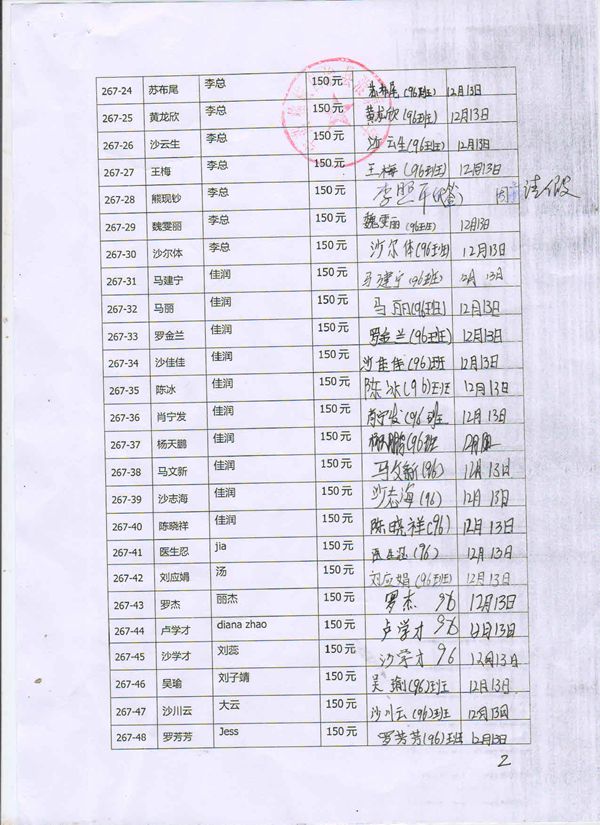 267-24 苏布尾 李总 150元 苏布尾(96班) 12月13日
267-25 黄龙欣 李总 150元 黄龙欣(96班) 12月13日
267-26 沙云生 李总 150元 沙云生(96班) 12月13日
267-27 王梅 李总 150元 王梅(96班) 12月13日
267-28 熊现钞 李总 150元 李照平(代签) 请假
267-29 魏雯丽 李总 150元 魏雯丽(96班) 12月13日
267-30 沙尔体 李总 150元 沙尔体(96班) 12月13日
267-31 马建宁 佳润 150元 马建宁(96班) 12月13日
267-32 马丽 佳润 150元 马丽(96班) 12月13日
267-33 罗金兰 佳润 150元 罗金兰(96班) 12月13日
267-34 沙佳佳 佳润 150元 沙佳佳(96)班 12月13日
267-35 陈冰 佳润 150元 陈冰(96)班 12月13日
267-36 肖宁发 佳润 150元 肖宁发(96班 12月13日
267-37 杨天鹏 佳润 150元 (96班
267-38 马文新 佳润 150元 马文新(96) 12月13日
267-39 沙志海 佳润 150元 沙志海(96) 12月13日
267-40 陈晓祥 佳润 150元 陈晓祥(96) 12月13日
267-41 医生忍 jia 150元 医生忍(96) 12月13日
267-42 刘应娟 汤 150元 刘应娟(96班) 12月13日
267-43 罗杰 丽杰 150元 罗杰 96 12月13日
267-44 卢学才 diana zhao 150元 卢学才 96 12月13日
267-45 沙学才 刘蕊 150元 沙学才 96 12月13日
267-46 吴瑜 刘子婧 150元 吴瑜(96)班 12月13日
267-47 沙川云 大云 150元 沙川云(96)班 12月13日
267-48 罗芳芳 Jess 150元 罗芳芳(96)班 12月13日
2